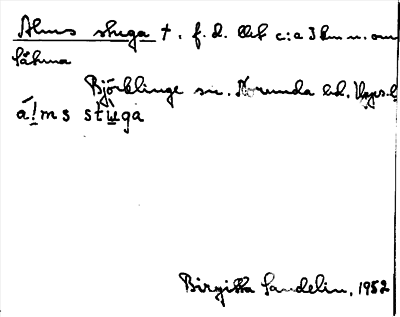 Alms stuga †. f. d. lht c:a 3 km n. om
Låkma
Björklinge sn. Norunda hd. Upps. l.
a´lms stuga
Birgitta Sandelin, 1952